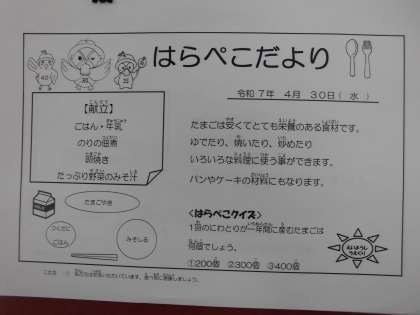 はらぺこだより
令和7年 4月 30日(水)
【献立】
ごはん・牛乳
のりの佃煮
卵焼き
たっぷり野菜のみそ汁
たまごは安くてとても栄養のある食材です。
ゆでたり、焼いたり、炒めたり
いろいろな料理に使う事ができます。
パンやケーキの材料にもなります。
たまごやき
つくだに
ごはん
みそしる
<はらぺこクイズ>
1羽のにわとりが一年間に産むたまごは
何個でしょう。
①200個 ②300個 ③400個